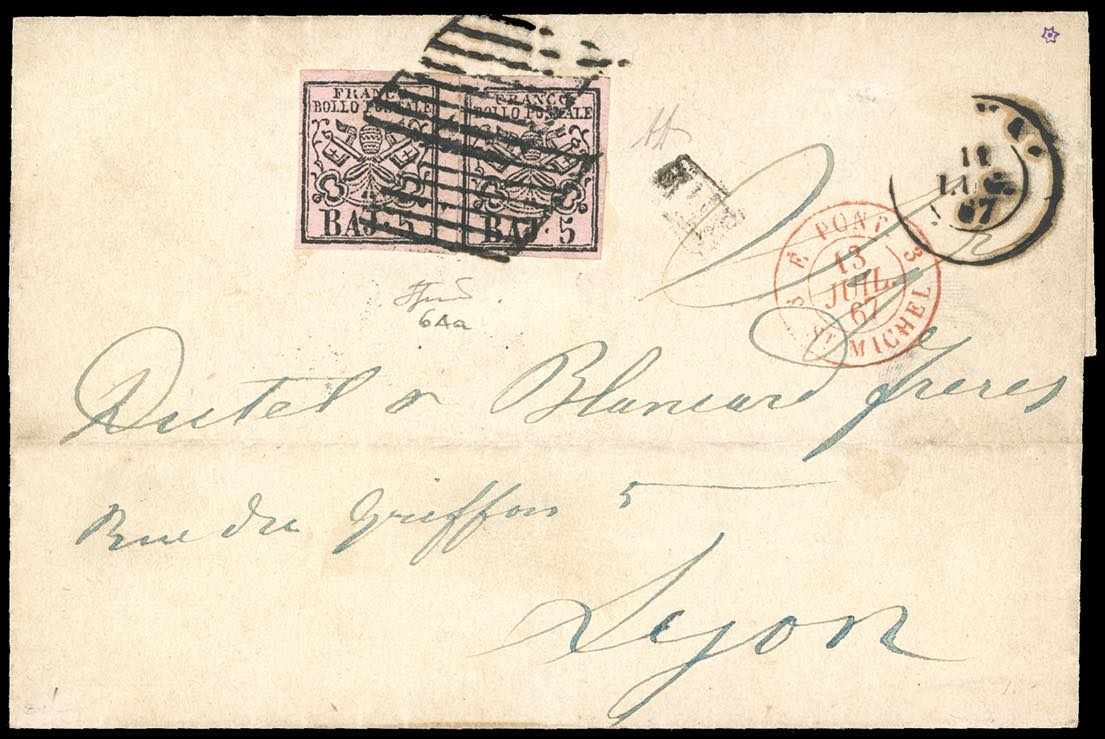 FRANCO
BOLLO POSTALE
BAJ. 5
FRANCO
BOLLO POSTALE
BAJ. 5
11
LUG
67
3 E. PONT ST MICHEL 3
13
JUIL.
67
6Aa
Dutel & Blancard frères
Rue du Griffon 5
Lyon